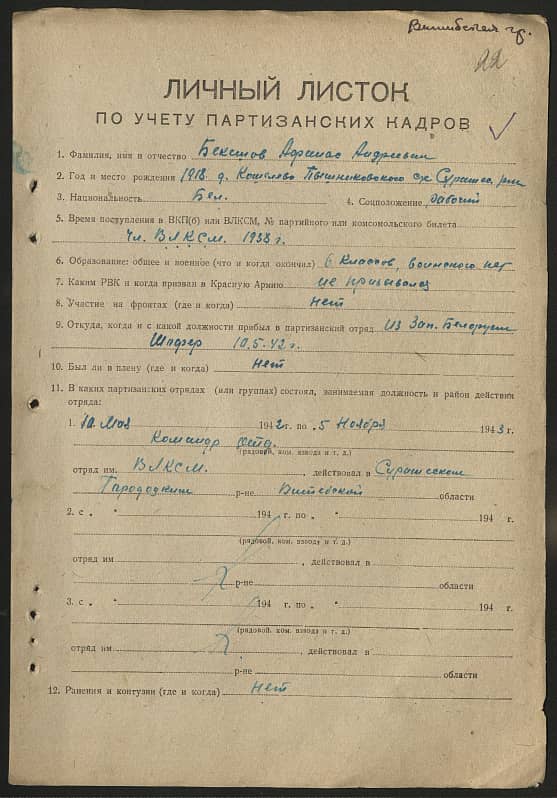 22
ЛИЧНЫЙ ЛИСТОК
ПО УЧЕТУ ПАРТИЗАНСКИХ КАДРОВ
1. Фамилия, имя и отчество Афанас Андреевич
2. Год и место рождения 1918. д. Кошелево Пышниковского с/с Сураж
3. Национальность Бел. 4. Соцположение рабочий
5. Время поступления в ВКП(б) или ВЛКСМ, № партийного или комсомольского билета
Чл. ВЛКСМ. 1938 г.
6. Образование: общее и военное (что и когда окончил) 6 классов, воинского нет
7. Каким РВК и когда призван в Красную Армию не призывался
8. Участие на фронтах (где и когда) Нет
9. Откуда, когда и с какой должности прибыл в партизанский отряд Из Зап. Белорусии
Шофер 10.5.42 г.
10. Был ли в плену (где и когда) Нет
11. В каких партизанских отрядах (или группах) состоял, занимаемая должность и район действия
отряда:
1. 10 Мая 1942 г. по „ 5 Ноября 1943 г.
Командир отд.
(рядовой, ком. взвода и т. д.)
отряд им. ВЛКСМ. , действовал в Суражском
Городокский р-не Витебской области
2. с „ " 194 г. по „ " 194 г.
(рядовой, ком. взвода и т. д.)
отряд им , действовал в
р-не области
3. с „ " 194 г. по „ " 194 г.
(рядовой, ком. взвода и т. д.)
отряд им , действовал в
р-не области
12. Ранения и контузии (где и когда) Нет